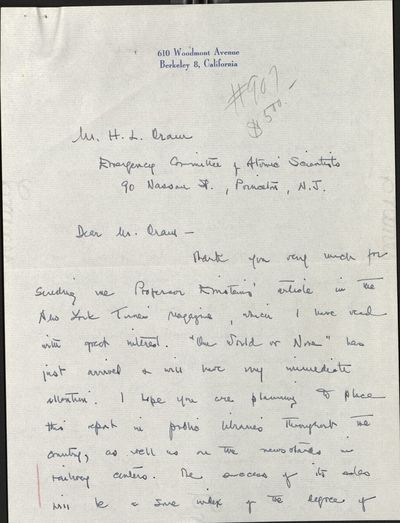 610 Woodmont Avenue
Berkeley 8, California
#907
$500.-
Mr. H. L. Oram
Emergency Committee of Atomic Scientists
90 Nassau St., Princeton, N.J.
Dear Mr. Oram -
Thank you very much for
sending me Professor Einstein's article in the
New York Times Magazine, which I have read
with great interest. "One World or None" has
just arrived & will have my immediate
attention. I hope you are planning to place
this report in public libraries throughout the
country, as well as on the newsstands in
railway centers. The success of its sales
will be a sure index of the degree of